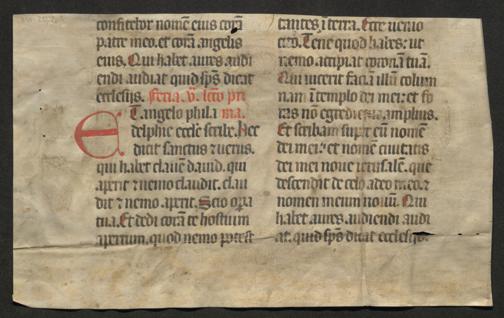 confitebor nomē eius corā
patre meo. et corā angelis
eius. Qui habet aures audi
endi audiat quid sp̄s dicat
ecclesijs. feria. v. lectō pri
Et angelo phila ma.
delphie eccl̄e scribe. hec
dicit sanctus ⁊ verus.
qui habet clauē dauid. qui
aperit ⁊ nemo claudit. clau
dit ⁊ nemo aperit. Scio opera
tua. Et dedi corā te hostium
apertum. quod nemo potest
tantes ī terra. Ecce uenio
cito. Tene quod habes: ut
nemo accipiat coronā tuā.
Qui uicerit faciā illū colum
nam ī templo dei mei: et fo
ras nō egredietur amplius.
Et scribam supr̄ eū nomē
dei mei: et nomē ciuitatis
dei mei noue ierusalē. que
descendit de celo a deo meo. ⁊
nomen meum nouū. Qui
habet aures audiendi audi
at. quid sp̄s dicat ecclesijs.